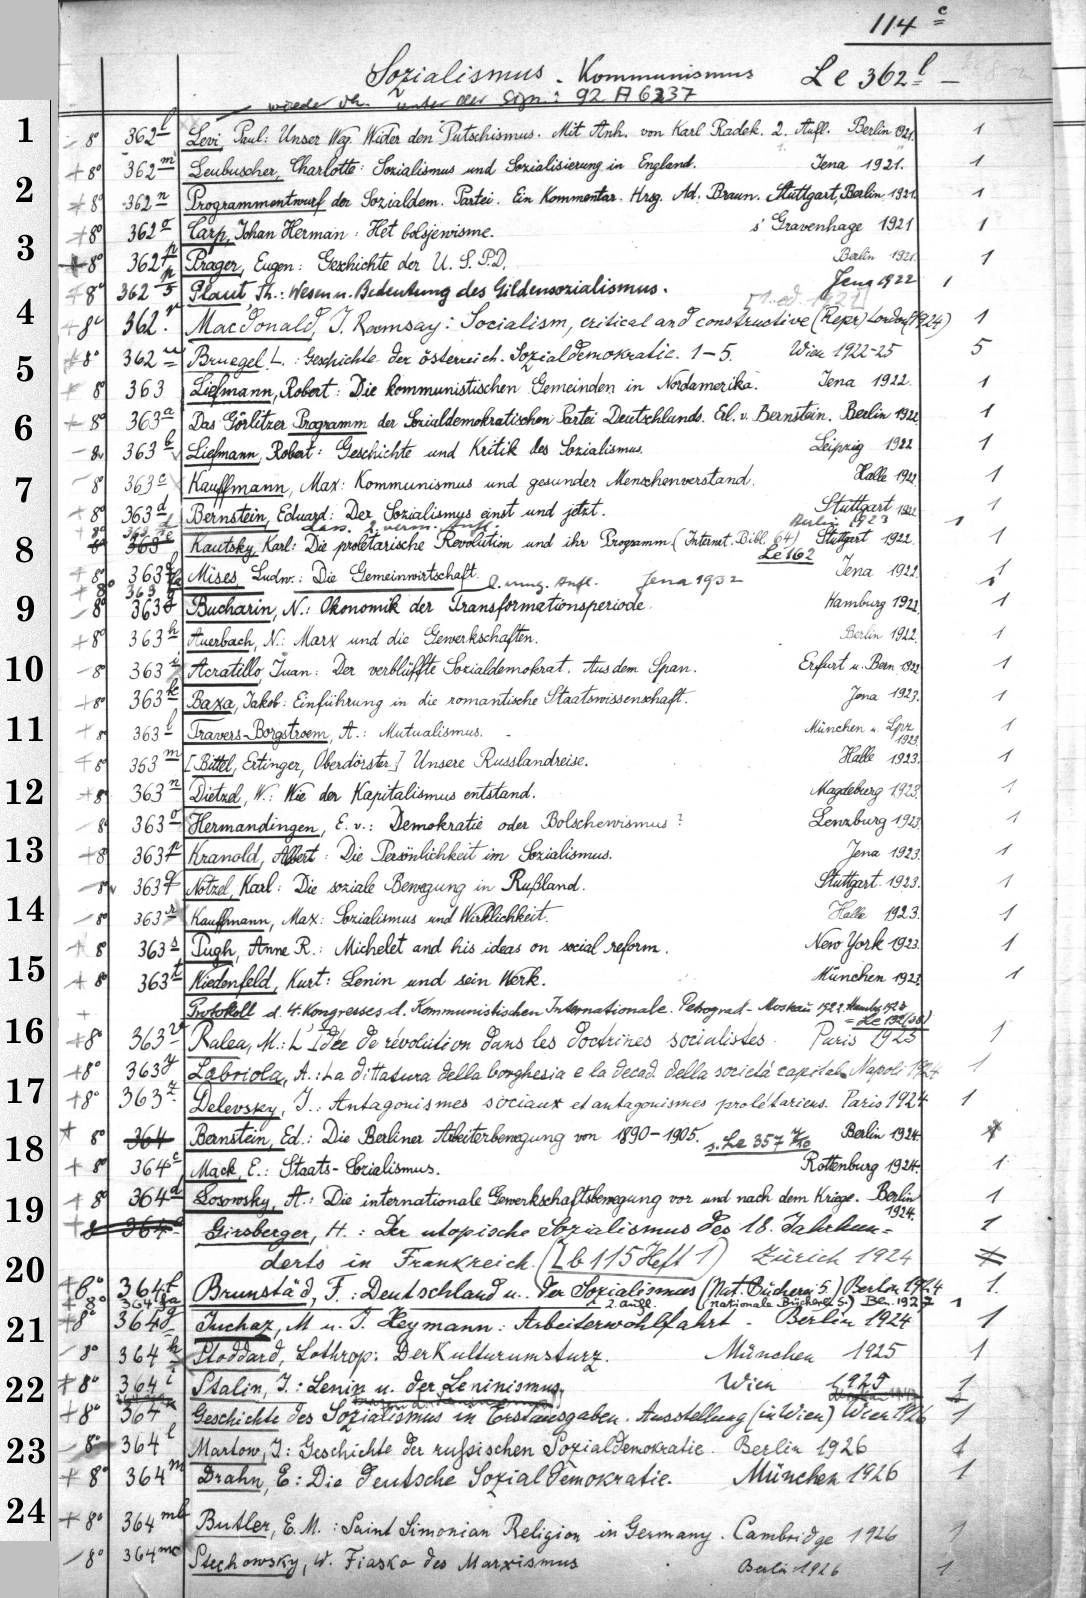 114 c
Sozialismus - Kommunismus Le 362 l -
wieder vh. unter der Sign.: 92 A 6237
1
8° 362 l Levi, Paul: Unser Weg. Wider den Putschismus. Mit Anh. von Karl Radek. 2. Aufl. Berlin 1921. 1
+8° 362 m Leubuscher, Charlotte: Sozialismus und Sozialisierung in England. Jena 1921. 1
2
+8° 362 n Programmentwurf der Sozialdem. Partei. Ein Kommentar. Hrsg. Ad. Braun. Stuttgart, Berlin 1921. 1
+8° 362 o Carp, Johan Herman: Het bolsjewisme. s' Gravenhage 1921 1
3
+8° 362 p Prager, Eugen: Geschichte der U.S.P.D. Berlin 1921. 1
+8° 362 Plaut, Th.: Wesen u. Bedeutung des Gildensozialismus. Jena 1922 1
[1. ed. 1921]
4
+8° 362 r Macdonald, J. Ramsay: Socialism, critical and constructive (Repr.) London (1924) 1
+8° 362 u Bruegel L.: Geschichte der österreich. Sozialdemokratie. 1-5. Wien 1922-25 5
5
+ 8° 363 Liefmann, Robert: Die kommunistischen Gemeinden in Nordamerika. Jena 1922. 1
6
+ 8° 363 a Das Görlitzer Programm der Sozialdemokratischen Partei Deutschlands. Erl. v. Bernstein. Berlin 1922 1
- 8° 363 b Liefmann, Robert: Geschichte und Kritik des Sozialismus. Leipzig 1922 1
7
- 8° 363 c Kauffmann, Max: Kommunismus und gesunder Menschenverstand. Halle 1922 1
+ 8° 363 d Bernstein, Eduard: Der Sozialismus einst und jetzt. Stuttgart 1922. 1
dass. 2. verm. Aufl. Berlin 1923 1
8
8° 363 e Kautsky, Karl: Die proletarische Revolution und ihr Programm (Internat. Bibl. 64) Stuttgart 1922. 1
Le 162
+ 8° 363 f Mises, Ludw.: Die Gemeinwirtschaft. Jena 1922. 1
+ 8° 363 fa 2. umg. Aufl. Jena 1932
9
8° 363 g Bucharin, N.: Ökonomik der Transformationsperiode. Hamburg 1922. 1
+8° 363 h Auerbach, N.: Marx und die Gewerkschaften. Berlin 1922. 1
10
-8° 363 i Acratillo, Juan: Der verblüffte Sozialdemokrat. Aus dem Span. Erfurt u. Bern 1922 1
+8° 363 k Baxa, Jakob: Einführung in die romantische Staatswissenschaft. Jena 1923. 1
11
+ 8° 363 l Travers-Borgstroem, A.: Mutualismus. München u. Lpz. 1923. 1
+ 8° 363 m [Bittel, Ertinger, Oberdörster] Unsere Russlandreise. Halle 1923. 1
12
+8° 363 n Dietzel, W.: Wie der Kapitalismus entstand. Magdeburg 1923. 1
- 8° 363 o Hermandingen, E. v.: Demokratie oder Bolschewismus? Lenzburg 1923. 1
13
+8° 363 p Kranold, Albert: Die Persönlichkeit im Sozialismus. Jena 1923. 1
- 8° 363 q Nötzel, Karl: Die soziale Bewegung in Rußland. Stuttgart 1923. 1
14
- 8° 363 r Kauffmann, Max: Sozialismus und Wirklichkeit. Halle 1923. 1
+ 8° 363 s Pugh, Anne R.: Michelet and his ideas on social reform. New York 1923. 1
15
+ 8° 363 t Wiedenfeld, Kurt: Lenin und sein Werk. München 1923. 1
+ Protokoll d. 4. Kongresses d. Kommunistischen Internationale. Petrograd-Moskau 1922. Hamburg 1923
= Le 192 (38)
16
+8° 363 v Ralea, M.: L'Idée de révolution dans les doctrines socialistes. Paris 1923 1
+8° 363 y Labriola, A.: La dittatura della borghesia e la decad. della società capital. Napoli 1924 1
17
+8° 363 z Delevsky, J.: Antagonismes sociaux et antagonismes prolétariens. Paris 1924 1
18
+ 8° 364 Bernstein, Ed.: Die Berliner Arbeiterbewegung von 1890-1905. s. Le 357 Berlin 1924.
+ 8° 364 c Mack, E.: Staats-Sozialismus. Rottenburg 1924. 1
19
+ 8° 364 d Losowsky, A.: Die internationale Gewerkschaftsbewegung vor und nach dem Kriege. Berlin 1924. 1
+ 8 364 e Girsberger, H.: Der utopische Sozialismus des 18. Jahrhun= 1
derts in Frankreich. (Lb 115 Heft 1) Zürich 1924
20
+8° 364 f Brunstäd, F.: Deutschland u. der Sozialismus (Nat. Bücherei 5.) Berlin 1924 1.
+8° 364 fa 2. Aufl. (Nationale Bücherei 5.) Bln. 1927 1
21
+8° 364 g Juchaz, M u. J. Heymann: Arbeiterwohlfahrt - Berlin 1924 1
- 8° 364 h Stoddard, Lothrop: Der Kulturumsturz. München 1925 1
22
+ 8° 364 i Stalin, J.: Lenin u. der Leninismus. Wien 1925 1
+ 8° 364 k Geschichte des Sozialismus in Erstausgaben. Ausstellung (in Wien) Wien 1926 1
23
8° 364 l Martow, J: Geschichte der russischen Sozialdemokratie. Berlin 1926 1
+ 8° 364 m Drahn, E: Die deutsche Sozialdemokratie. München 1926 1
24
+ 8° 364 mb Butler, E.M.: Saint Simonian Religion in Germany. Cambridge 1926 1
- 8° 364 mc Stechowsky, W. Fiasko des Marxismus Berlin 1926 1.